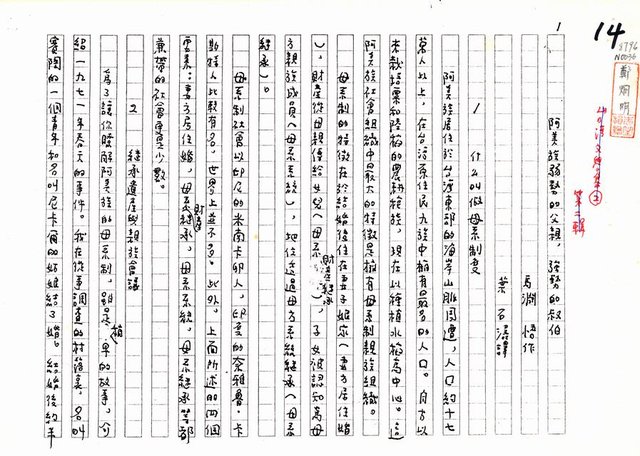 14
8796
N0036
鄭烱明
1
阿美族弱勢的父親,強勢的叔伯
馬淵悟作
葉石濤譯
1 什么叫做母系制度
阿美族居住於台灣東部的海岸山脈周邊,人口約十七
萬人以上,在台灣原住民九族中擁有最多的人口。自古以
來栽培粟和陸稻的農耕種族,現在以種植水稻為中心。這
阿美族社會組織中最大的特徵是擁有母系制親族組織。
母系制的特徵在於結婚後住在妻子娘家(妻方居住婚
),財產從母親傳給女兒(母系財產繼承),子女被認知為母
方親族成員(母系系統),地位透過母方系統繼承(母系
繼承)。
母系制社會以印尼的米南卡卯人,印度的奈雅魯。卡
斯特人比較有名,世界上並不多。此外,上面所述的四個
要素:妻方居住婚,母系財產繼承,母系系統,母系繼承等都
兼帶的社會更少數。
2 繼承遺產與親族會議
為了讓你瞭解阿美族的母系制,雖是簡單的故事,介
紹一九七一年春天的事件。我在從事調查的村落裏,名叫
賓陶的一個青年和名叫尼卡爾的姑娘結了婚。結婚後約半